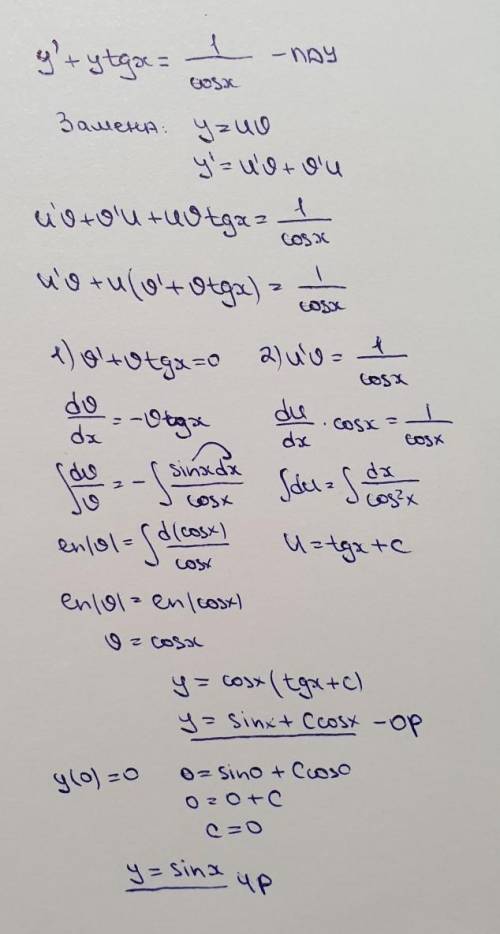 y' + y tgx = 1/cosx - ЛДУ
Замена: y = uv
y' = u'v + v'u
u'v + v'u + uv tgx = 1/cosx
u'v + u(v' + v tgx) = 1/cosx
1) v' + v tgx = 0
dv/dx = -v tgx
∫ dv/v = -∫ sinx dx/cosx
ln|v| = ∫ d(cosx)/cosx
ln|v| = ln|cosx|
v = cosx
2) u'v = 1/cosx
du/dx · cosx = 1/cosx
∫ du = ∫ dx/cos²x
u = tgx + c
y = cosx (tgx + c)
y = sinx + c cosx - ОР
y(0) = 0
0 = sin0 + c cos0
0 = 0 + c
c = 0
y = sinx ЧР